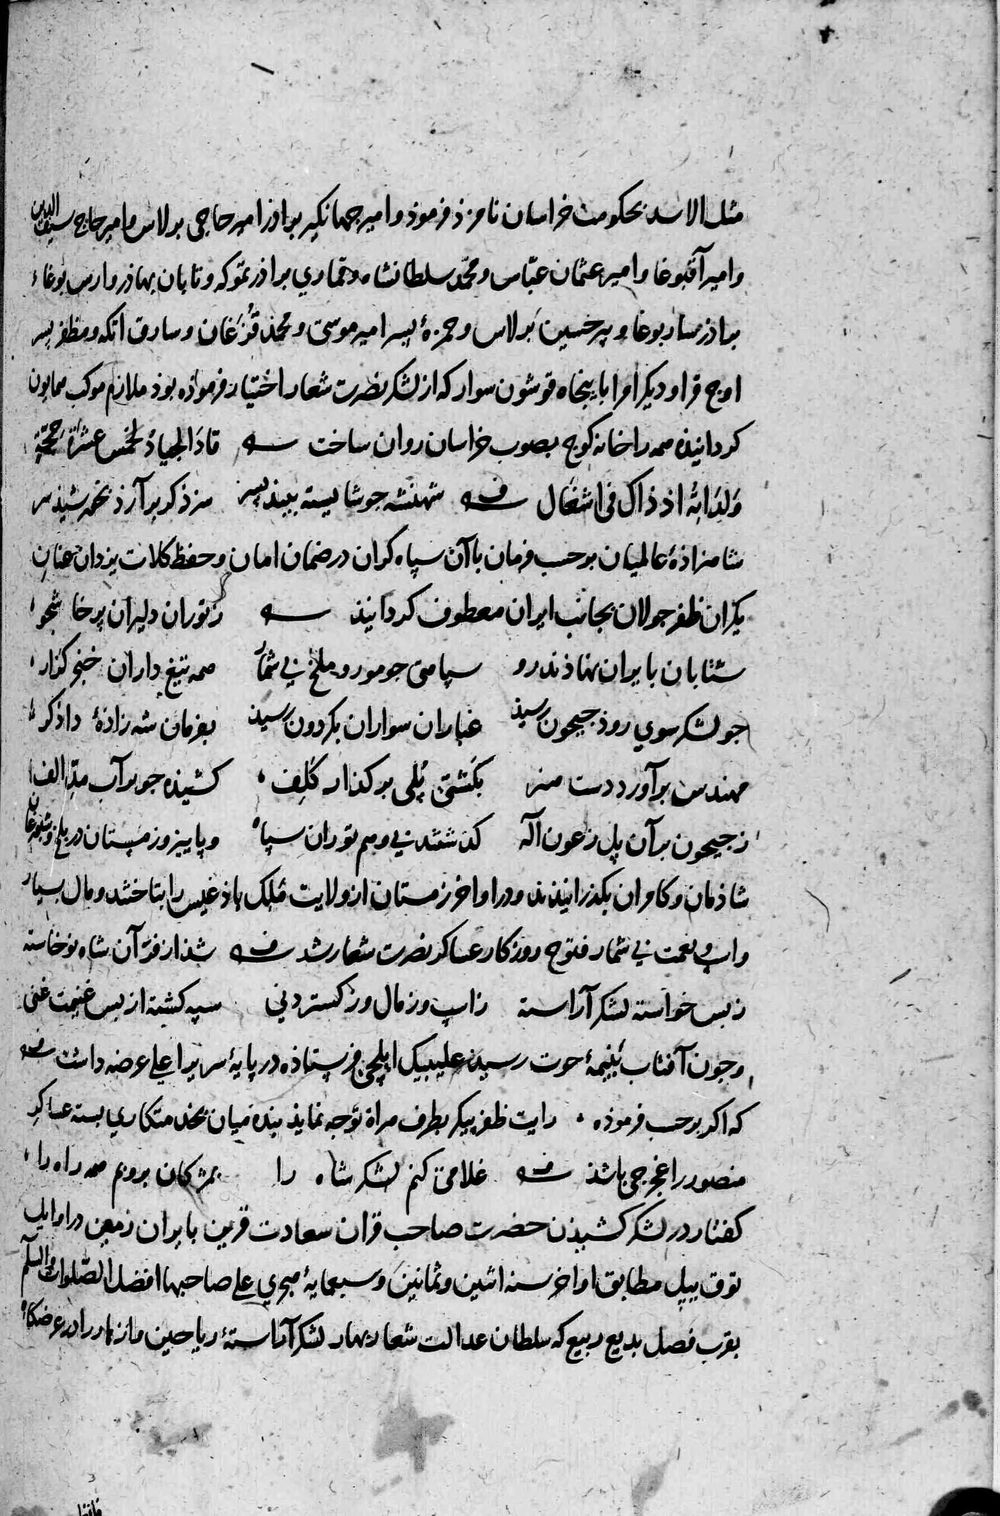 مثل الاسد بحکومت خراسان نامزد فرموذ و امیر جهانکیر براذر امیر حاجی برلاس و امیر حاج سیف الدین
و امیر آقبوغا و امیر عثمان عباس و محمد سلطانشاه و قماري براذر تموکه و تابان بهاذر و ارس بوغا
براذر ساربوغا و پیر حسین برلاس و حمزهٔ پسر امیر موسی و محمذ قزغان و سارق اتکه و مظفر پسر
اوچ قرا و دیکر امرا با پنجاه قوشون سوار که از لشکر نصرت شعار اختیار فرموذه بوذ ملازم موکب همایون
کردانیذه همه را خانه کوچ بصوب خراسان روان ساخت قاد الجیاد لخمس عشرة حجة
و لداته اذ ذاک فی اشغال شهنشه جو شایسته بیند پسر سزذ کر برآرذ بخرشیذ سر
شاهزاذهٔ عالمیان بر حسب فرمان با آن سپاه کران در ضمان امان و حفظ کلات یزدان عنان
یکران ظفر جولان بجانب ایران معطوف کردانیذ ز توران دلیران پرخاشجو
شتابان بایران نهاذند رو سپاهی جو مور و ملخ بی شمار همه تیغ داران خنجر کذار
جو لشکر سوي روذ جیحون رسیذ غبار ان سواران بکردون رسیذ بفرمان شه زاذهٔ داذکر
مهندس برآورد دست هنر بکشتی پلی بر کذار کلف کشیذه جو بر آب مد الف
ز جیحون بر آن پل ز عون اله کذشتند بی وهم توران سپاه و پاییز و زمستان در بلخ و شبورغان
شاذمان و کامران بکذرانیذند و در اواخر زمستان از ولایت ملک باذغیس را بتاختند و مال بسیار
و اسپ و نعمت بی شمار فتوح روزکار عساکر نصرت شعار شد شذ از فر آن شاه نوخاسته
ز بس خواسته لشکر آراسته ز اسپ و ز مال و ز کستردنی سپه کشته از بس غنیمت غنی
و جون آفتاب بنیمهٔ حوت رسیذ علیبیک ایلچی فرستاذه در پایهٔ سریر اعلی عرضه داشت
که اکر بر حسب فرموذه رایت ظفر پیکر بطرف هراة توجه نمایذ بنده میان بخذمتکاري بسته عساکر
منصور را غجرجی باشذ غلامی کنم لشکر شاه را بمژکان بروبم همه راه را
کفتار در لشکر کشیذن حضرت صاحب قران سعادت قرین بایران زمین در اوایل
توق ییل مطابق اواخر سنه اثنین و ثمانین و سبعمایهٔ هجري علی صاحبها افضل الصلوات و السلم
بقرب فصل بدیع ربیع که سلطان عدالت شعار بهار لشکر آراستهٔ ریاحین و ازهار را در عرضکاه